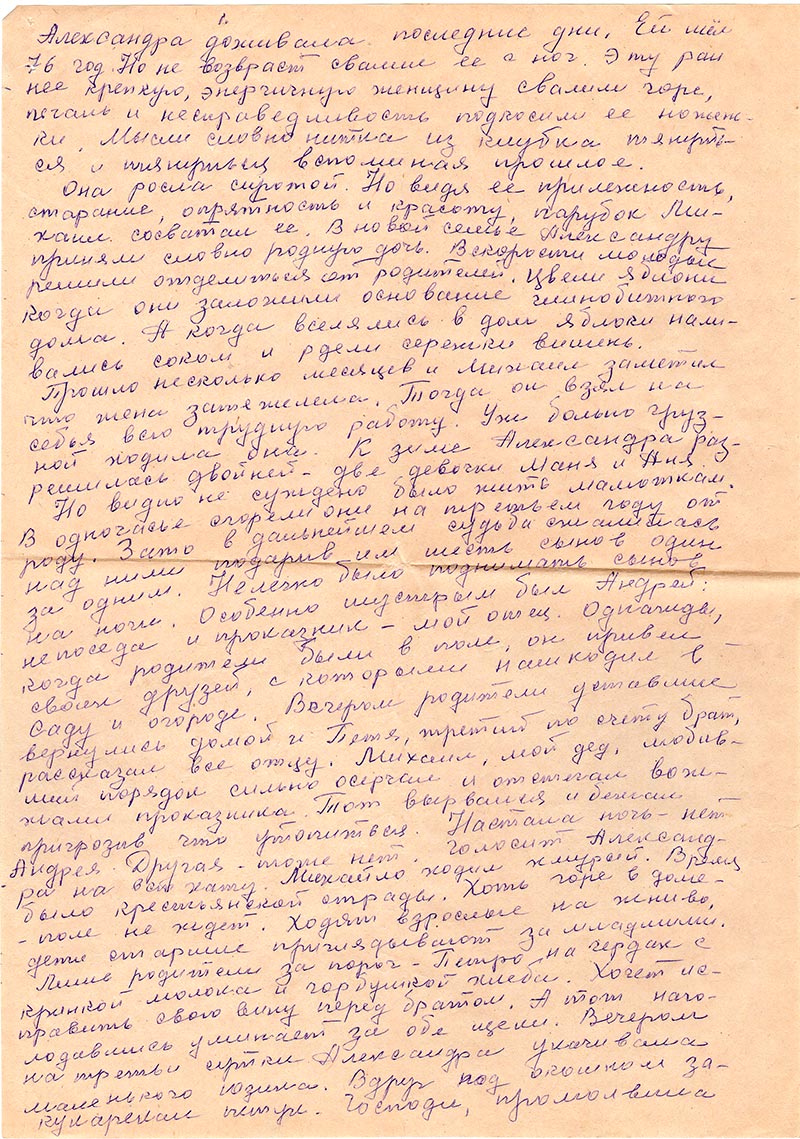 1.
Александра доживала последние дни. Ей шёл
76 год. Но не возвраст свалил ее с ног. Эту ран
нее крепкую, энергичную женщину свалили горе,
печаль и несправедливость подкосили ее ножень-
ки. Мысли словно нитка из клубка тянуть-
ся и тянуться вспоминая прошлое.
Она росла сиротой. Но видя ее прилежность,
старание, опрятность и красоту, парубок Ми-
хаил сосватал ее. В новой семье Александру
приняли словно родную дочь. Вскорости молодые
решили отделиться от родителей. Цвели яблони
когда они заложили основание глинобитного
дома. А когда вселялись в дом яблоки нали-
вались соком и рдели сережки вишень.
Прошло несколько месяцев и Михаил заметил
что жена затежелела. Тогда он взял на
себья всю трудную работу. Уж больно груз-
ной ходила она. К зиме Александра раз-
решилась двойней - две девочки Маня и Аня.
Но видно не суждено было жить малюткам.
В одночасье сгорели они на третьем году от
роду. Зато в дальнейшем судьба сжалилась
над ними подарив им шесть сынов один
за одним. Нелечко было поднимать сынов
на ноги. Особенно шустрым был Андрей:
непоседа и проказник - мой отец. Однажды,
когда родители были в поле, он привел
своих друзей, с которыми нашкодил в
саду и огороде. Вечером родители уставшие
вернулись домой и Петя, третий по счету брат,
рассказал все отцу. Михаил, мой дед, любив-
ший порядок сильно осерчал и отстегал вож-
жами проказника. Тот вырвался и бежал
пригрозив что утопиться. Настала ночь - нет
Андрея. Другая - тоже нет. Голосит Александ-
ра на всю хату. Михайло ходил хмурый. Время
было крестьянской страды. Хоть горе в доме -
- поле не ждет. Ходят взрослые на жниво,
дети старшие приглядывают за младшими.
Лишь родители за порог - Петро на чердак с
кринкой молока и горбушкой хлеба. Хочет ис-
править свою вину перед братом. А тот наго-
лодавшись уминает за обе щеки. Вечером
на третьи сутки Александра укачивала
маленького Кузима. Вдруг под окошком за-
кукарекал петух. Господи, промолвила